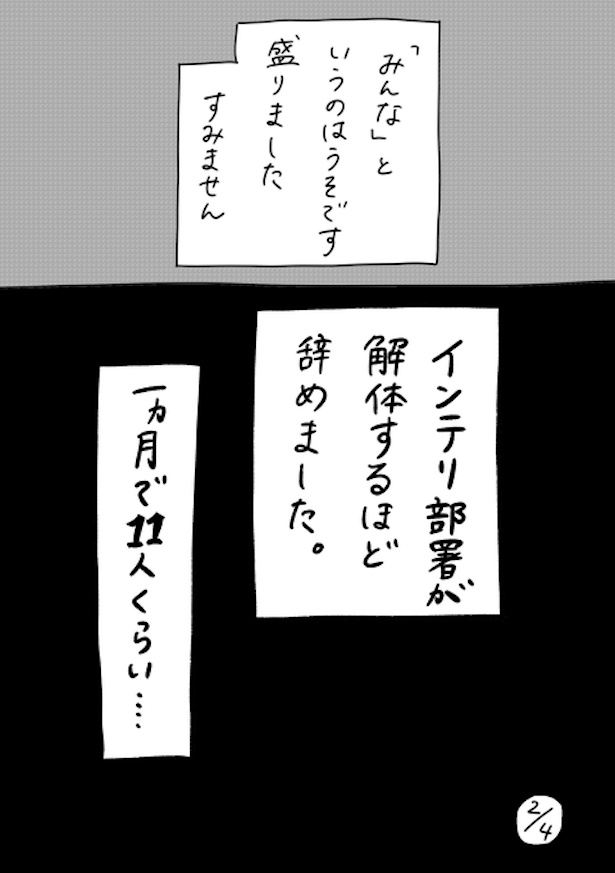 「みんな」と
いうのはうそです
盛りました
すみません
インテリ部署が
解体するほど
辞めました。
一ヵ月で11人くらい……
2/4